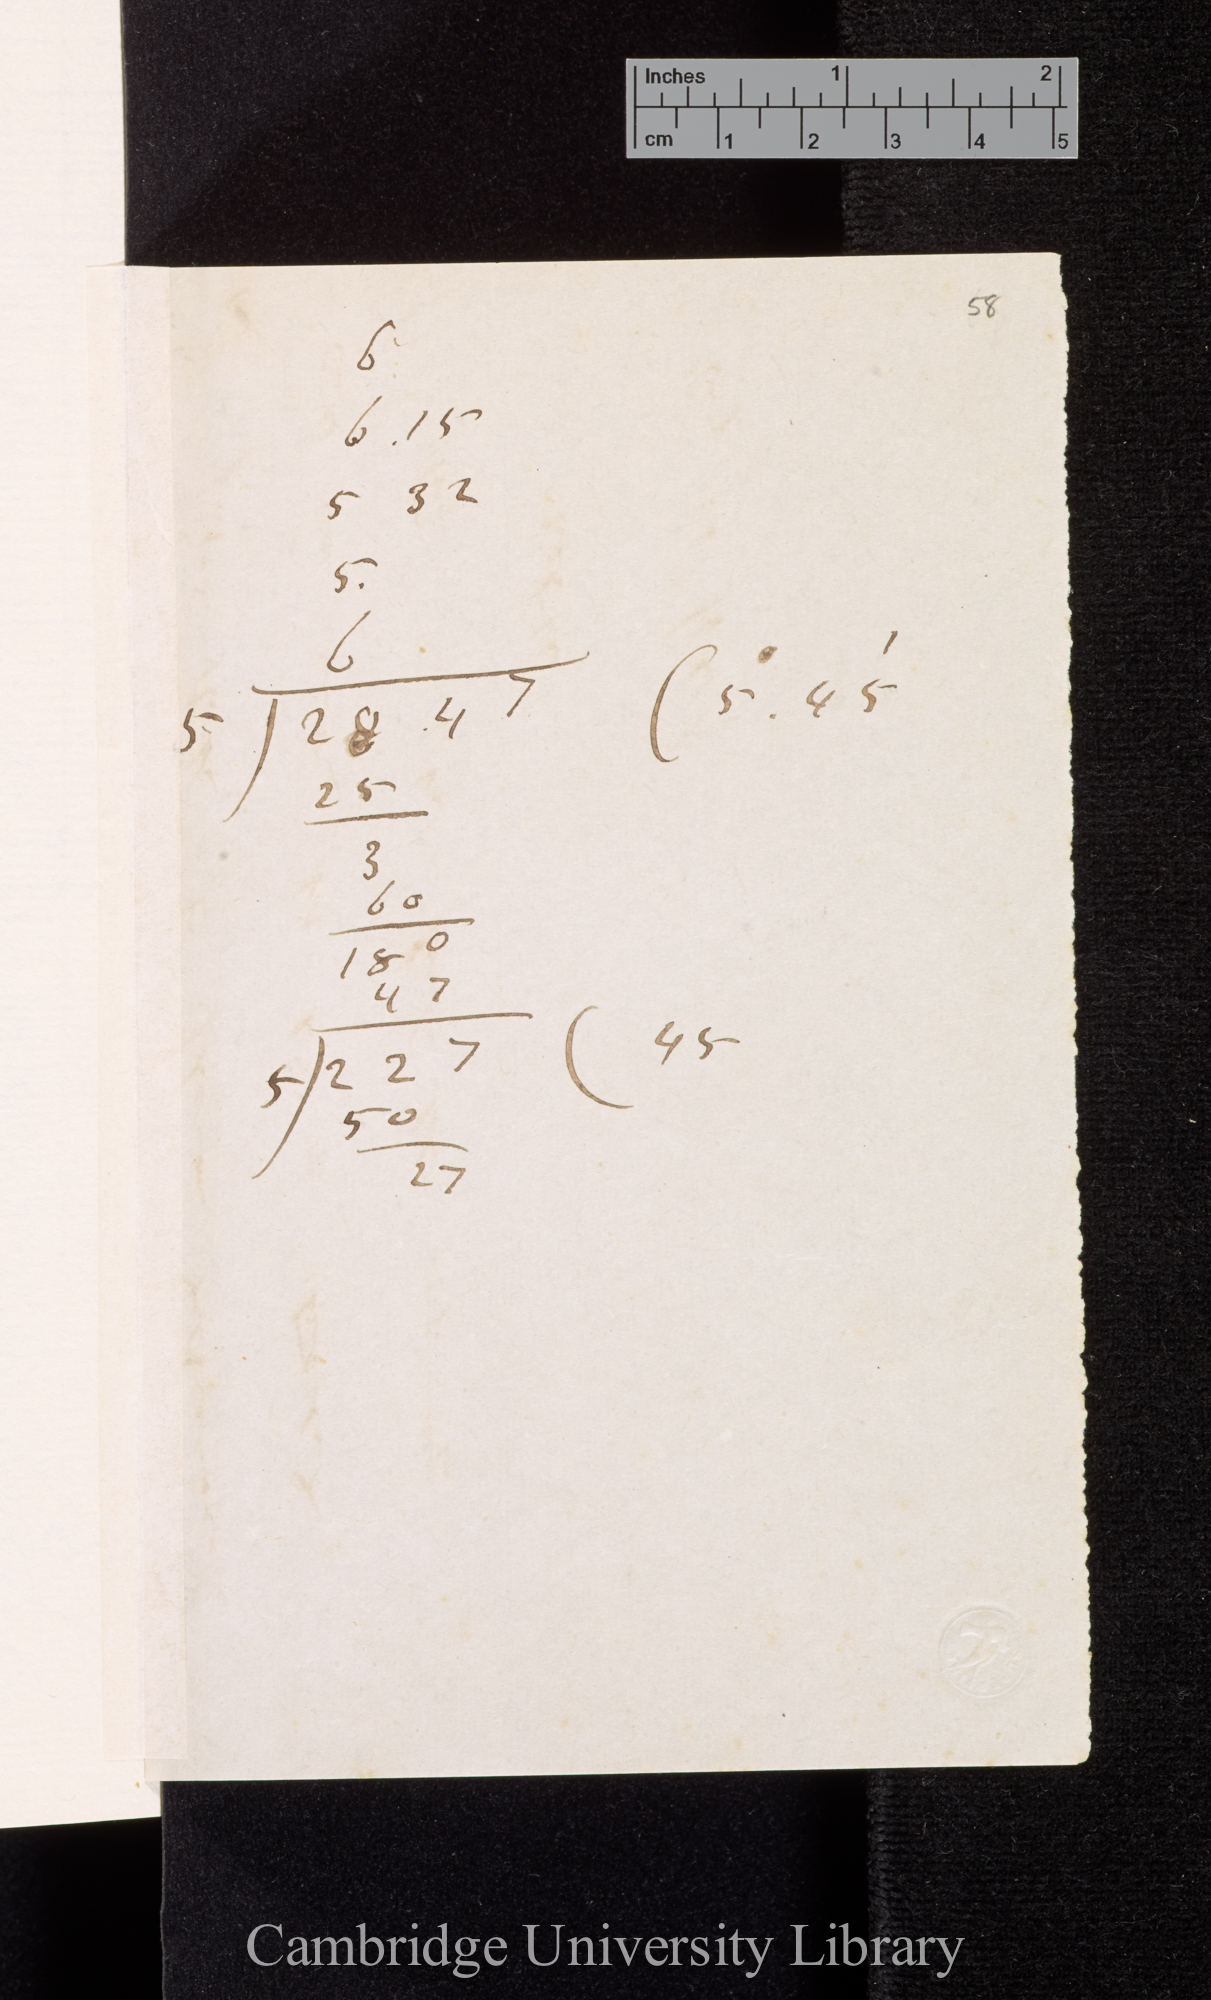 Inches 1 2
cm 1 2 3 4 5
58
6
6 .15
5 32
5.
6
5 ) 28 .47 ( 5°. 45'
25
3
60
180
47
5 ) 227 ( 45
50
27
Cambridge University Library